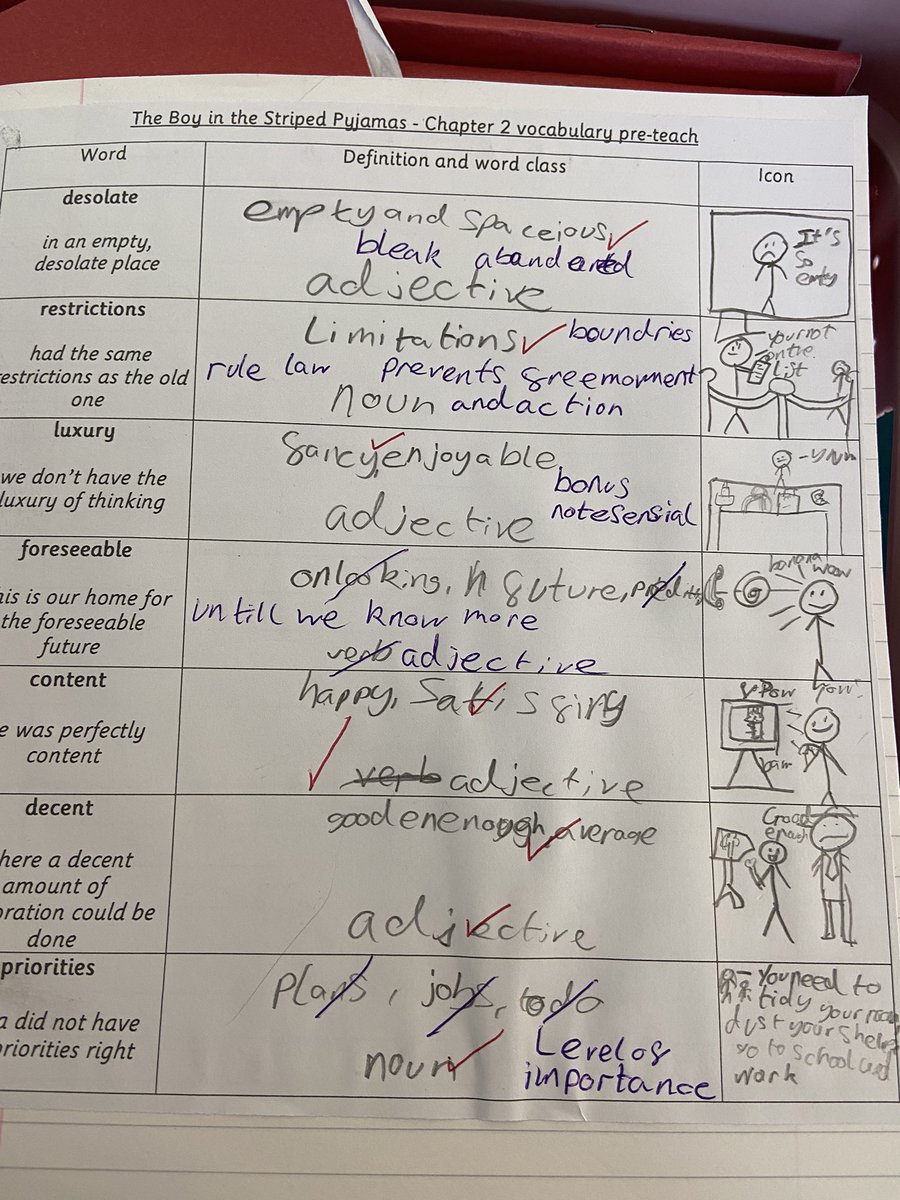 The Boy in the Striped Pyjamas - Chapter 2 vocabulary pre-teach
Word
Definition and word class
Icon
desolate
in an empty,
desolate place
empty and spaceious
bleak
adjective
It's
so
empty
restrictions
had the same
restrictions as the old
one
Limitations boundries
rule law prevents
noun and action
Your not
list
luxury
we don't have the
luxury of thinking
fancy, enjoyable
bonus
adjective
foreseeable
his is our home for
the foreseeable
future
onlooking, in future,
untill we know more
verb adjective
banana woow
content
e was perfectly
content
happy, satisfying
verb adjective
Pow
decent
here a decent
amount of
oration could be
done
good enenough, average
adjective
Good
enough
priorities
a did not have
priorities right
plans, jobs, to do
noun
Level of
importance
You need to
tidy your room
dust your shelf
go to school and
work